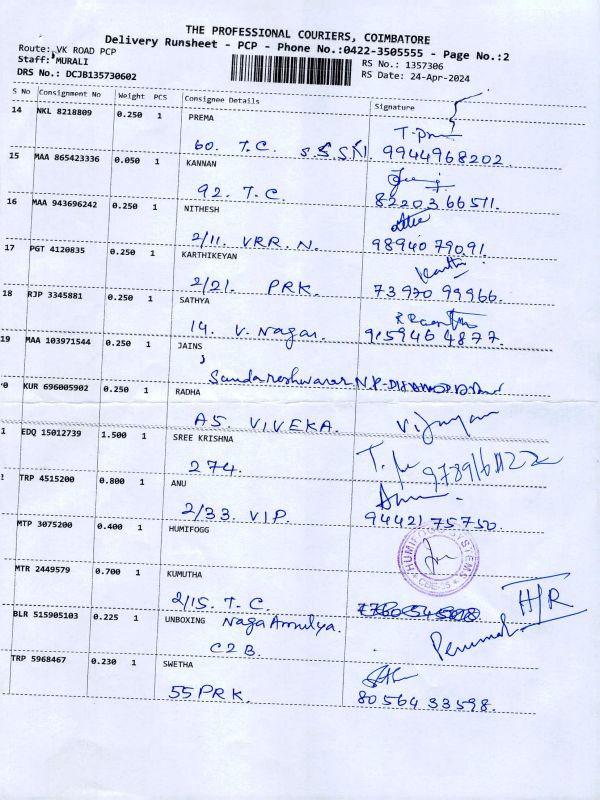 THE PROFESSIONAL COURIERS, COIMBATORE
Delivery Runsheet - PCP - Phone No.:0422-3505555 - Page No.:2
Route: VK ROAD PCP
Staff: MURALI
DRS No.: DCJB135730602
RS No.: 1357306
RS Date: 24-Apr-2024
S No Consignment No Weight PCS Consignee Details Signature
14 NKL 8218809 0.250 1 PREMA
60. T.C. 9944968202.
15 MAA 865423336 0.050 1 KANNAN
92. T.C. 8220366511.
16 MAA 943696242 0.250 1 NITHESH
2/11. VRR. N. 9894079091.
17 PGT 4120835 0.250 1 KARTHIKEYAN
2/21. PRK. 7397099966.
18 RJP 3345881 0.250 1 SATHYA
14. V. Nagar. 9159464877.
19 MAA 103971544 0.250 1 JAINS
Sundareshwarar
0 KUR 696005902 0.250 1 RADHA
A5. VIVEKA. Vijayan
1 EDQ 15012739 1.500 1 SREE KRISHNA
274.
TRP 4515200 0.800 1 ANU
2/33. V.I.P. 9442175750.
MTP 3075200 0.400 1 HUMIFOGG
HUMIFOGG SYSTEMS
MTR 2449579 0.700 1 KUMUTHA
2/15. T.C. H/R
BLR 515905103 0.225 1 UNBOXING Naga Amulya.
C2B. Perumal
TRP 5968467 0.230 1 SWETHA
55 PRK. 8056433598.